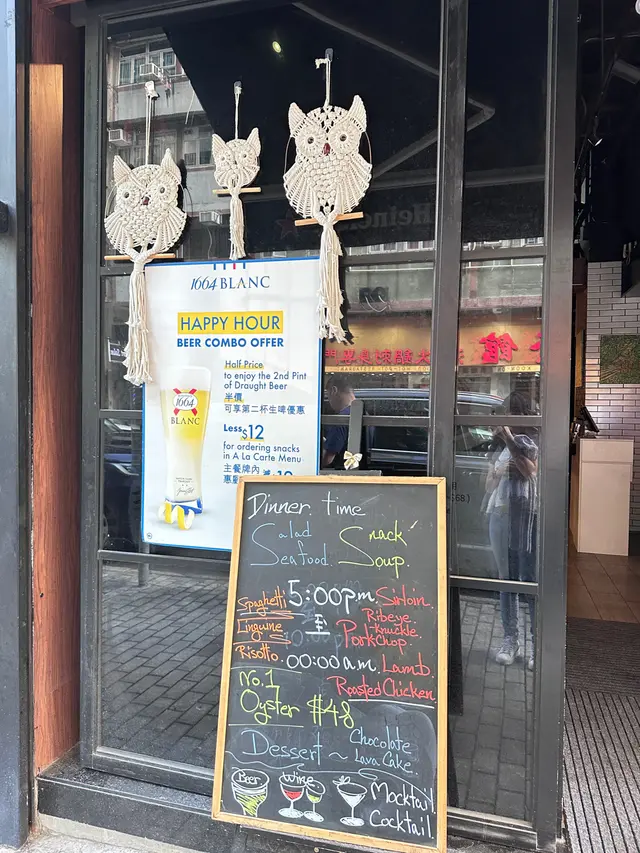 1664 BLANC
HAPPY HOUR
BEER COMBO OFFER
Half Price
to enjoy the 2nd Pint
of Draught Beer
半價
可享第二杯生啤優惠
Less $12
for ordering snacks
in A La Carte Menu
主餐牌內
1664
BLANC
Dinner time
Salad Snack
Seafood Soup.
Spaghetti 5:00pm Sirloin.
Ribeye.
Linguine Knuckle
Pork Chop.
Risotto. 00:00am. Lamb.
No.1 Roasted Chicken.
Oyster $48
Dessert ~ Chocolate
Lava Cake.
Beer Wine Mocktail
Cocktail.